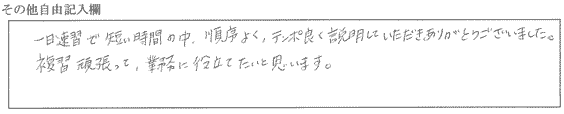 その他自由記入欄
一日速習で短い時間の中、順序よく、テンポ良く説明していただきありがとうございました。
複習頑張って、業務に役立てたいと思います。